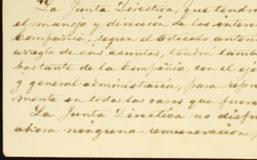 La Junta Directiva, que tendrá
el manejo y dirección de los intere
Compañía, según el Artículo anterio
arreglo de sus asuntos, tendrá tambi
bastante de la Compañía, con el eje
y general administración, para repre
mente en todos los casos que fuere
La Junta Directiva no disfru
ahora ninguna remuneración